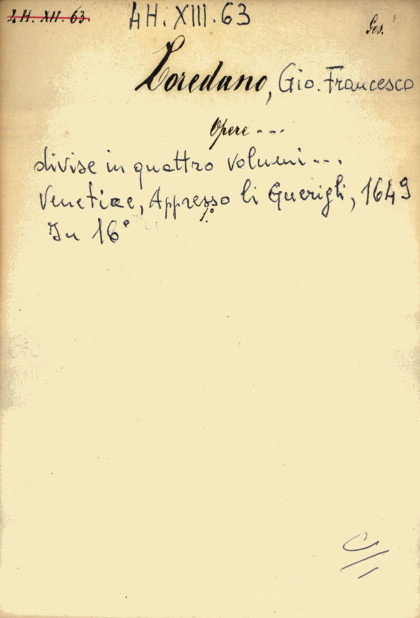 4 H. XII. 63. 4H. XIII. 63 Ges.
Loredano, Gio. Francesco
Opere ---
divise in quattro volumi ---
Venetiae, Appresso li Guerigli, 1649
In 16°